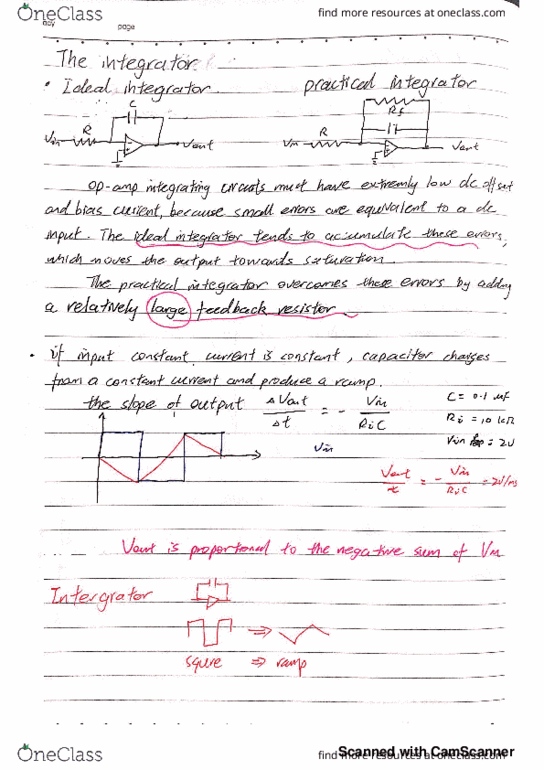 OneClass
find more resources at oneclass.com
page
The integrator
• Ideal integrator.
practical integrator
C
R
Vin
Vout
Rf
R
Vin
Vout
op-amp integrating circuits must have extremly low dc offset
and bias current, because small errors are equivalent to a dc
input. The ideal integrator tends to accumulate these errors,
which moves the output towards saturation.
The practical integrator overcomes these errors by adding
a relatively large feedback resistor
• if input constant, current is constant, capacitor charges
from a constant current and produce a ramp.
the slope of output ΔVout/Δt = - Vin/RiC
C = 0.1 uf
Ri = 10 kΩ
Vin = 2V
Vin
Vout/t = - Vin/RiC = -2V/ms
Vout is proportional to the negative sum of Vin
Intergrator
squre ⇒ ramp
Scanned with CamScanner
OneClass
find more resources at oneclass.com